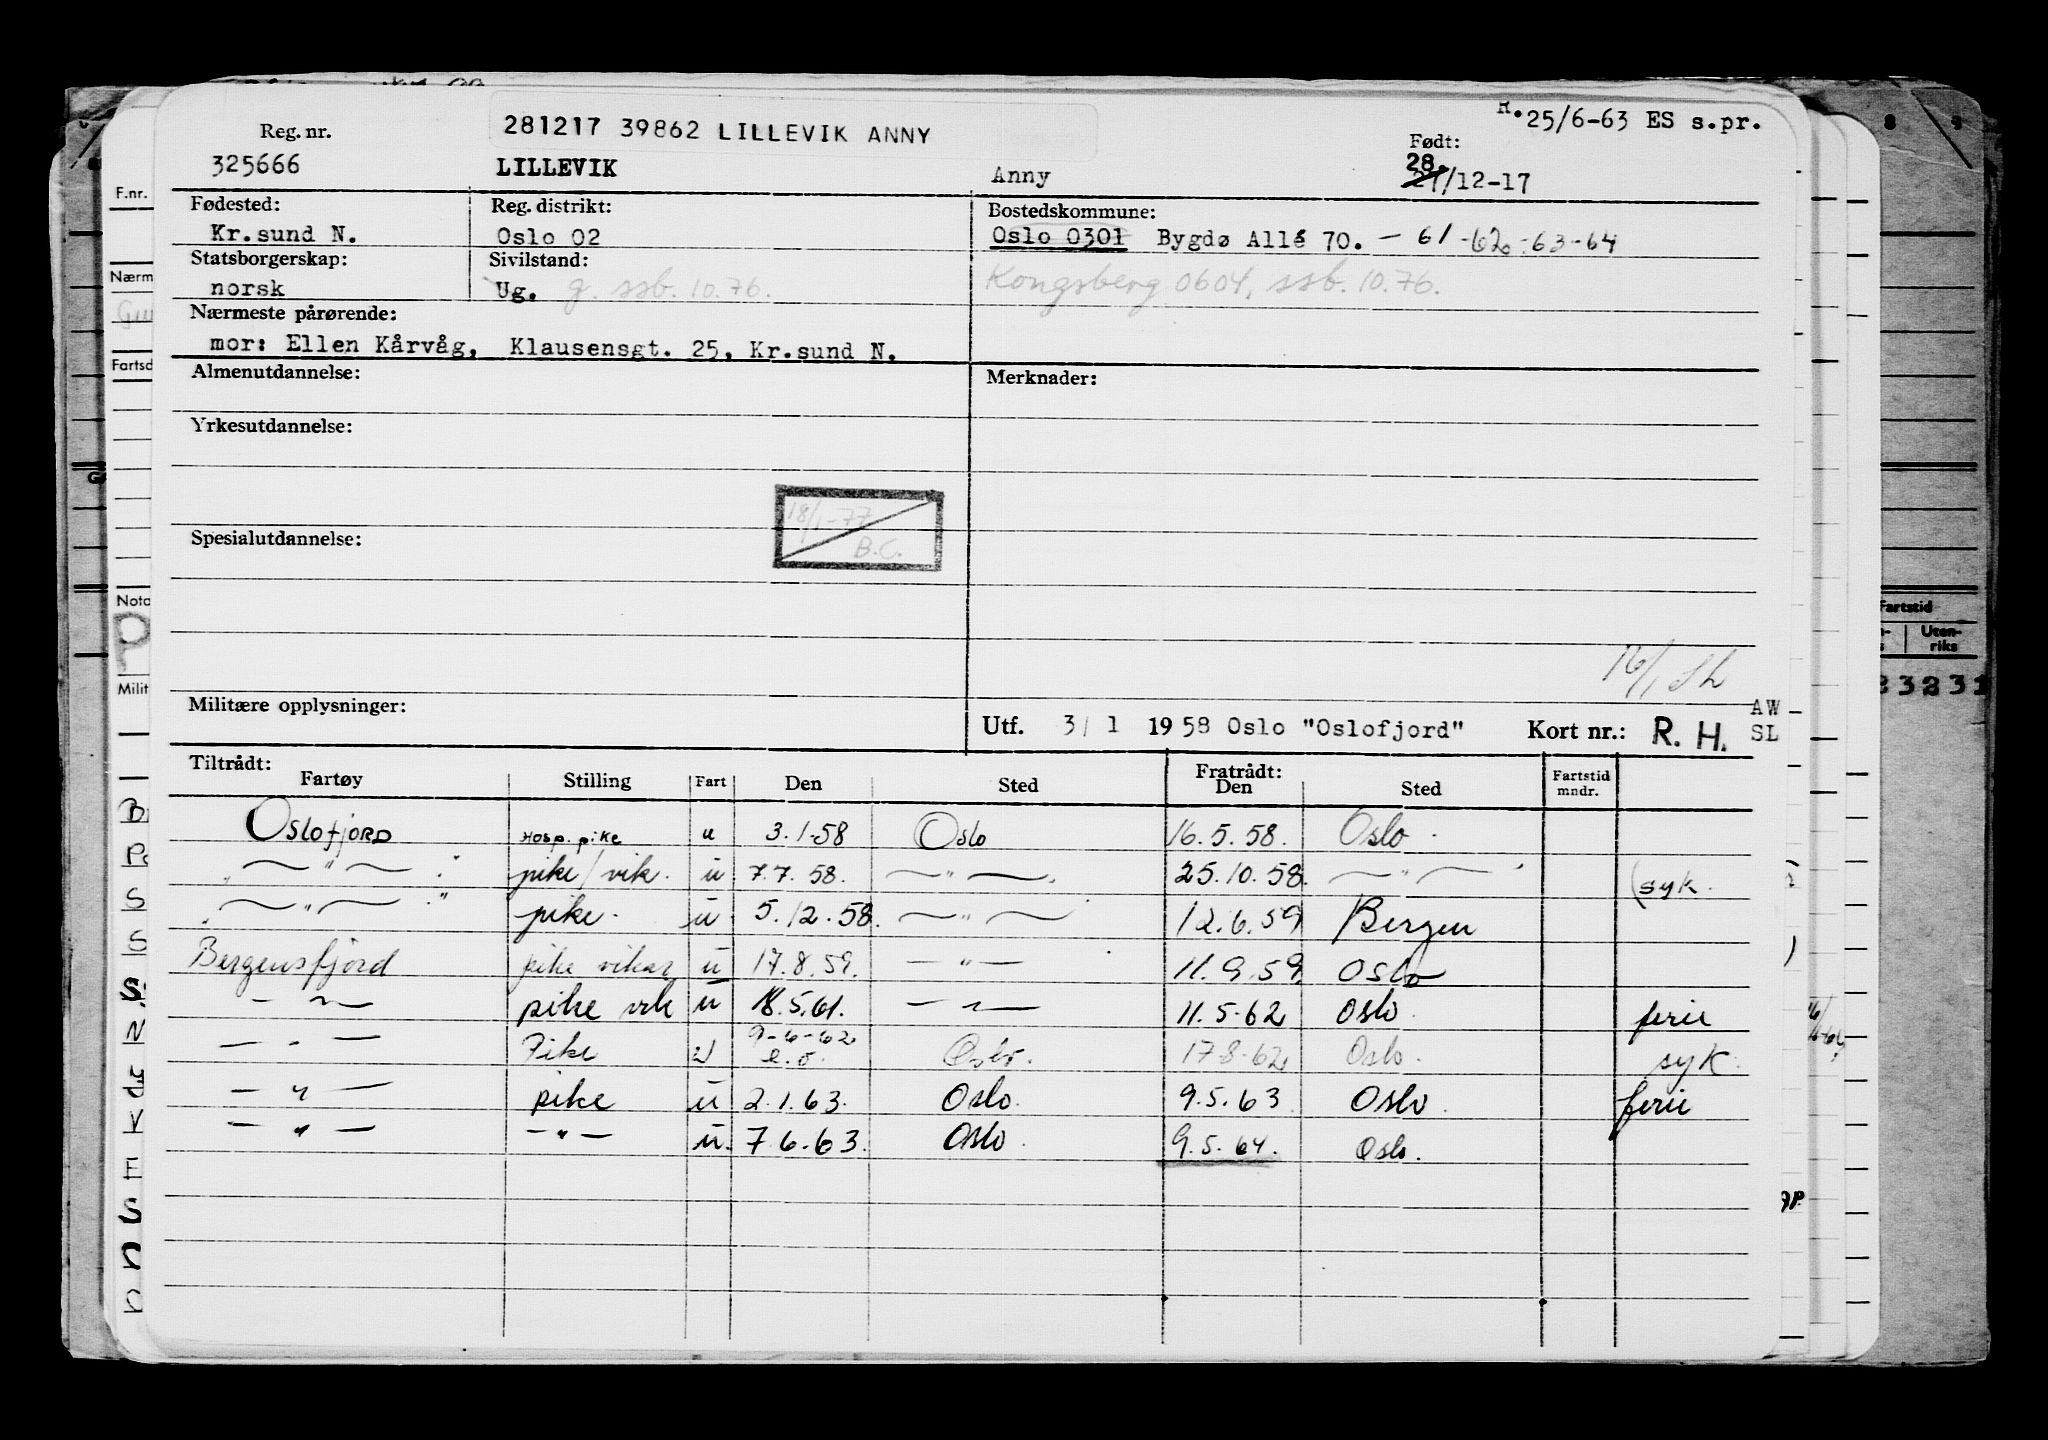 R. 25/6-63 ES s.pr.
281217 39862 LILLEVIK ANNY
Reg. nr. Født:
325666 LILLEVIK Anny 28. 27/12-17
Fødested: Reg. distrikt: Bostedskommune:
Kr.sund N. Oslo 02 Oslo 0301 Bygdø Allé 70. - 61 -62 -63-64
Statsborgerskap: Sivilstand:
norsk Ug. g. ssb. 10.76. Kongsberg 0604, ssb. 10.76.
Nærmeste pårørende:
mor: Ellen Kårvåg, Klausensgt. 25, Kr.sund N.
Almenutdannelse: Merknader:
Yrkesutdannelse:
18/1-77
B.C.
Spesialutdannelse:
16/1 Sh
Militære opplysninger:
Utf. 3/ 1 1958 Oslo "Oslofjord" Kort nr.: R. H. AW SL
Tiltrådt: Fratrådt:
Fartøy Stilling Fart Den Sted Den Sted Fartstid mndr.
Oslofjord Hosp. pike u 3.1-58 Oslo 16.5.58. Oslo.
— " — pike/vik. u 7.7.58. — " — 25.10.58. — " — (syk.
— " — pike. u 5.12.58. — " — 12.6.59 Bergen
Bergensfjord pike vikar u 17.8.59. — " — 11.9.59. Oslo
— " — pike vik u 18.5.61. — " — 11.5-62 Oslo. ferie
— " — Pike u 9-6-62 e.o. Oslo. 17-8-62 Oslo. syk.
— " — pike u 2.1.63. Oslo. 9.5.63 Oslo. ferie
— " — — " — u. 7.6.63. Oslo. 9.5.64. Oslo.
F.nr.
Nærm
Fartsd
Nota
Milit
Fartstid
Uten-
riks